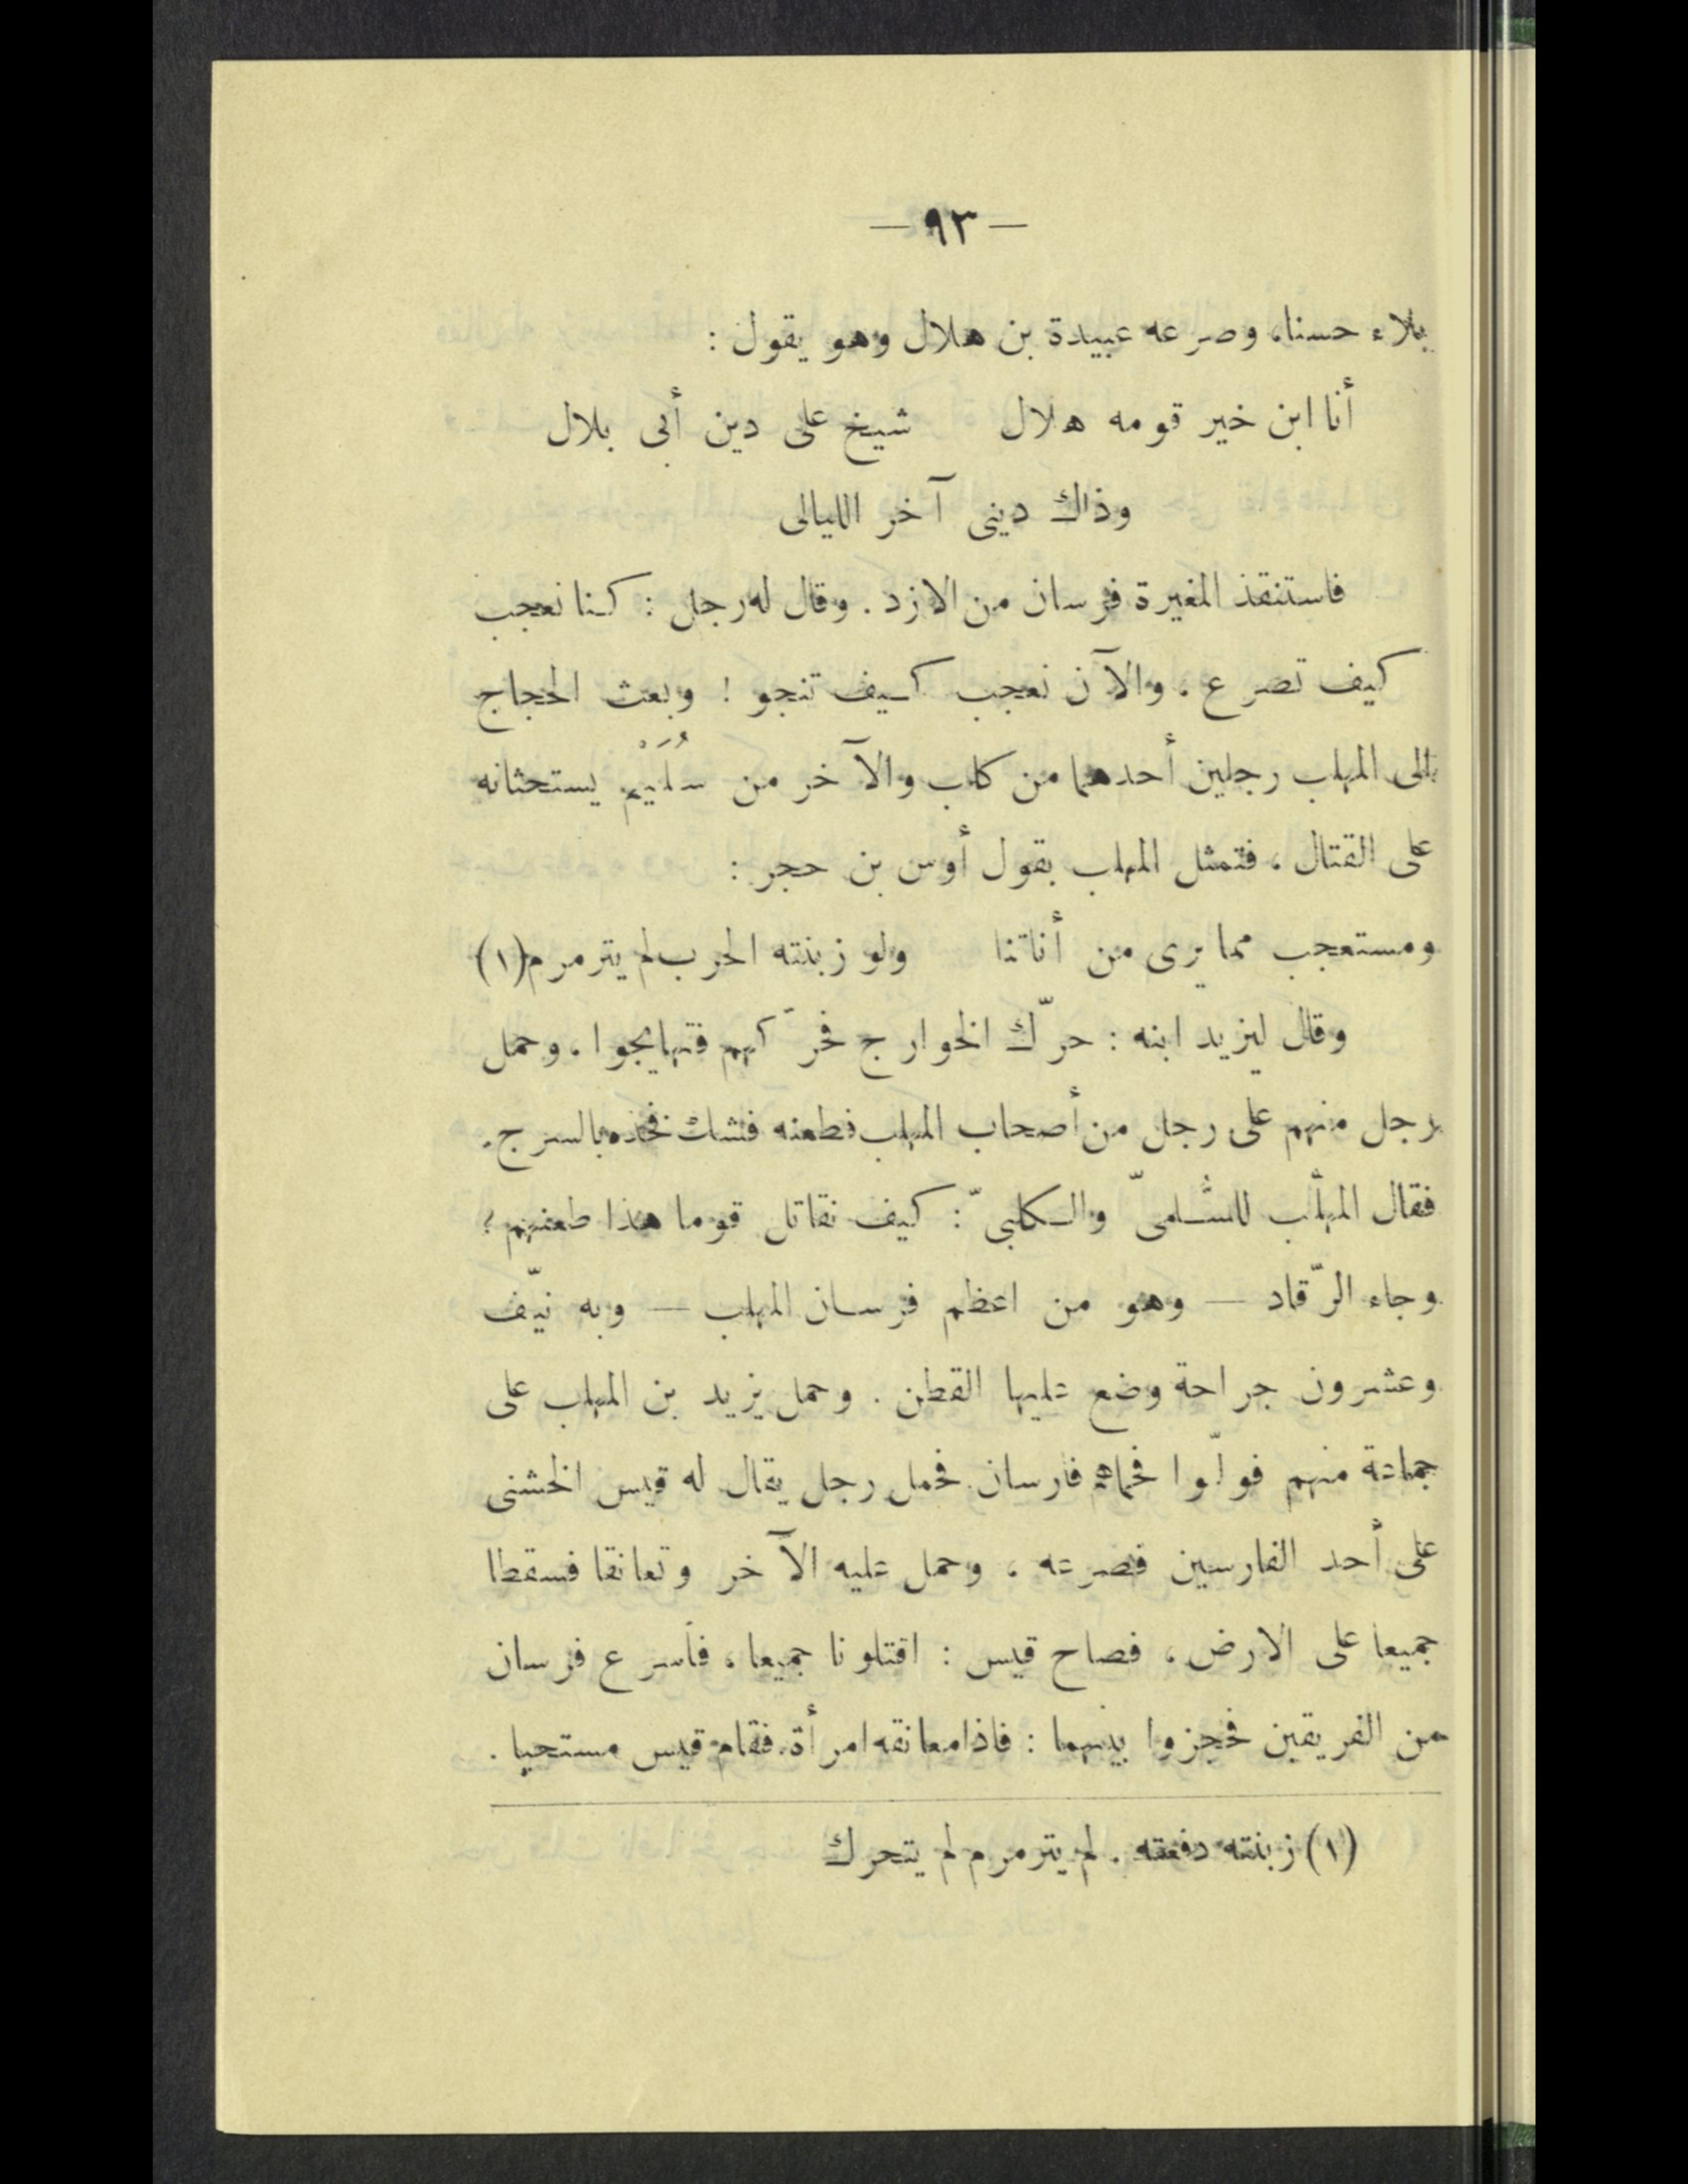 — ٩٣ —
بلاء حسنا، وصرعه عبيدة بن هلال وهو يقول :
أنا ابن خير قومه هلال شيخ على دين أبى بلال
وذاك دينى آخر الليالى
فاستنقذ المغيرة فرسان من الازد . وقال له رجل : كنا نعجب
كيف تصرع ، والآن نعجب كيف تنجو ! وبعث الحجاج
إلى المهلب رجلين أحدهما من كلب والآخر من سُلَيْم يستحثانه
على القتال ، فتمثل المهلب بقول أوس بن حجر :
ومستعجب مما يرى من أناتنا ولو زبنته الحرب لم يترمرم (١)
وقال ليزيد ابنه : حرّك الخوارج فحرّكهم فتهايجوا ، وحمل
رجل منهم على رجل من أصحاب المهلب فطعنه فشك فخذه بالسرج .
فقال المهلّب للسُّلمىّ والكلبىّ : كيف نقاتل قوما هذا طعنهم ؟
وجاء الرّقاد — وهو من اعظم فرسان المهلب — وبه نيّف
وعشرون جراحة وضع عليها القطن . وحمل يزيد بن المهلب على
جماعة منهم فولّوا فحماهم فارسان فحمل رجل يقال له قيس الخشنى
على أحد الفارسين فصرعه ، وحمل عليه الآخر وتعانقا فسقطا
جميعا على الارض ، فصاح قيس : اقتلونا جميعا ، فأسرع فرسان
من الفريقين فحجزوا بينهما : فاذا معانقه امرأة، فقام قيس مستحييا .
(١) زبنته دفعته . لم يترمرم لم يتحرك